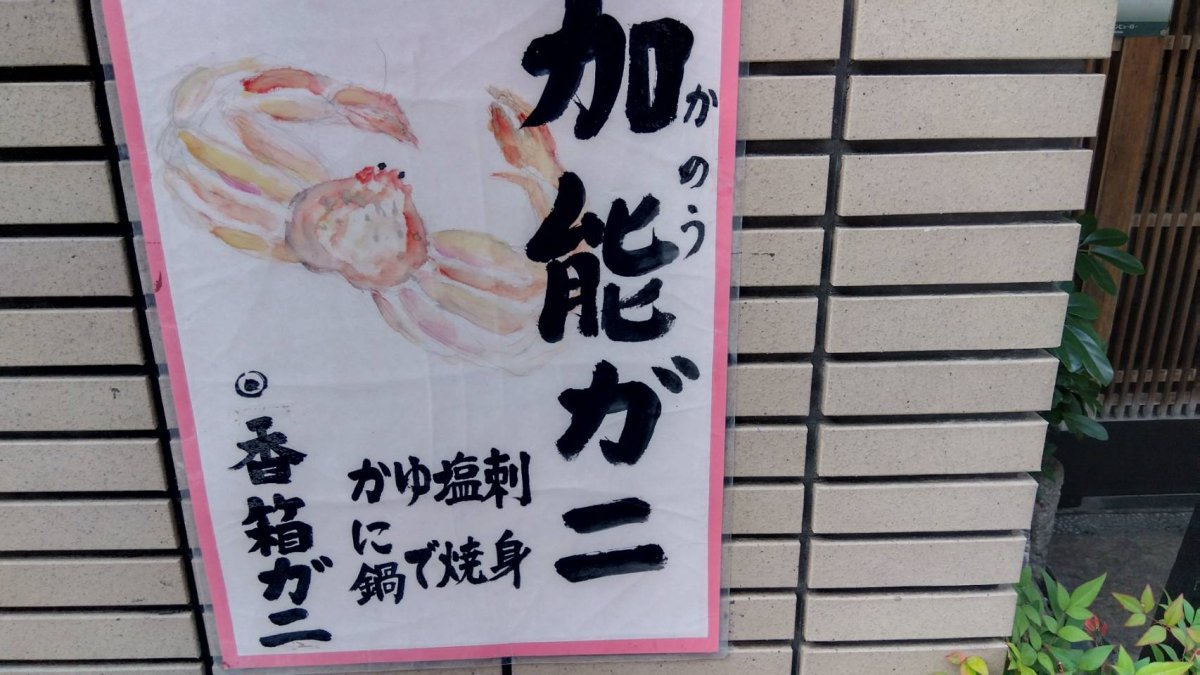 加能ガニ
かのう
刺身
塩焼
ゆで
かに鍋
◎香箱ガニ